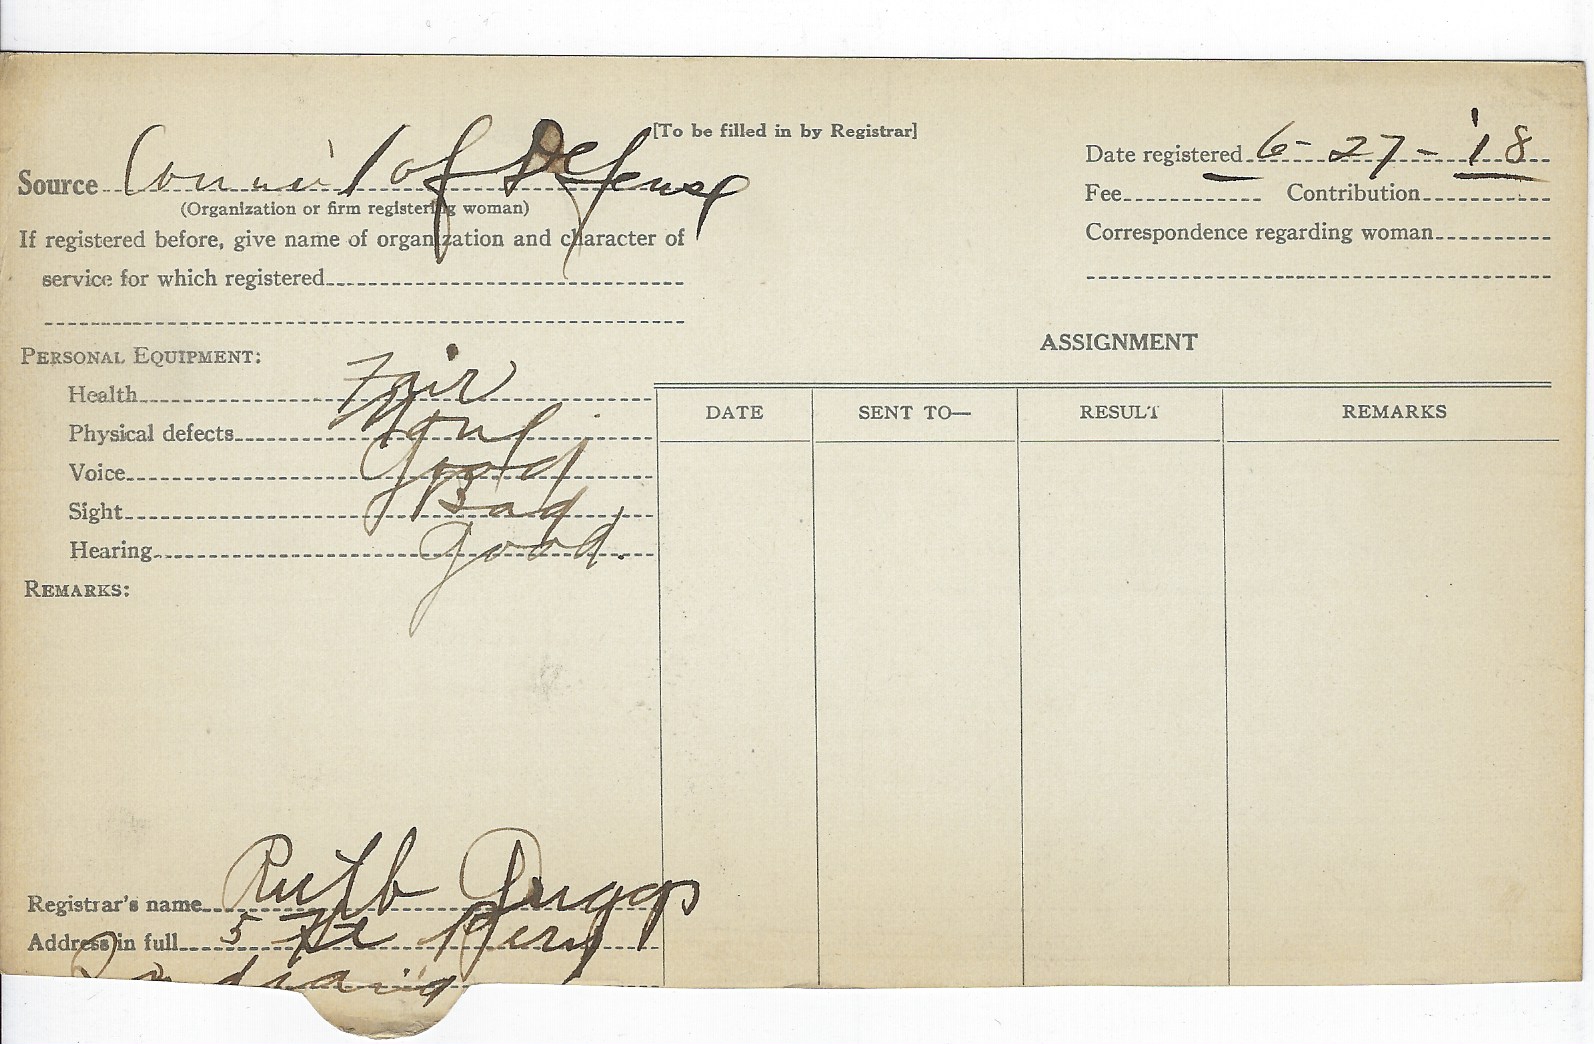 [To be filled in by Registrar]
Date registered 6-27-'18
Source Council of Defense
(Organization or firm registering woman)
Fee Contribution
If registered before, give name of organization and character of
service for which registered
Correspondence regarding woman
ASSIGNMENT
PERSONAL EQUIPMENT:
Health Fair
Physical defects None
Voice Good
Sight Bad
Hearing Good.
REMARKS:
DATE SENT TO— RESULT REMARKS
Registrar's name Ruth
Address in full 5
Indiana